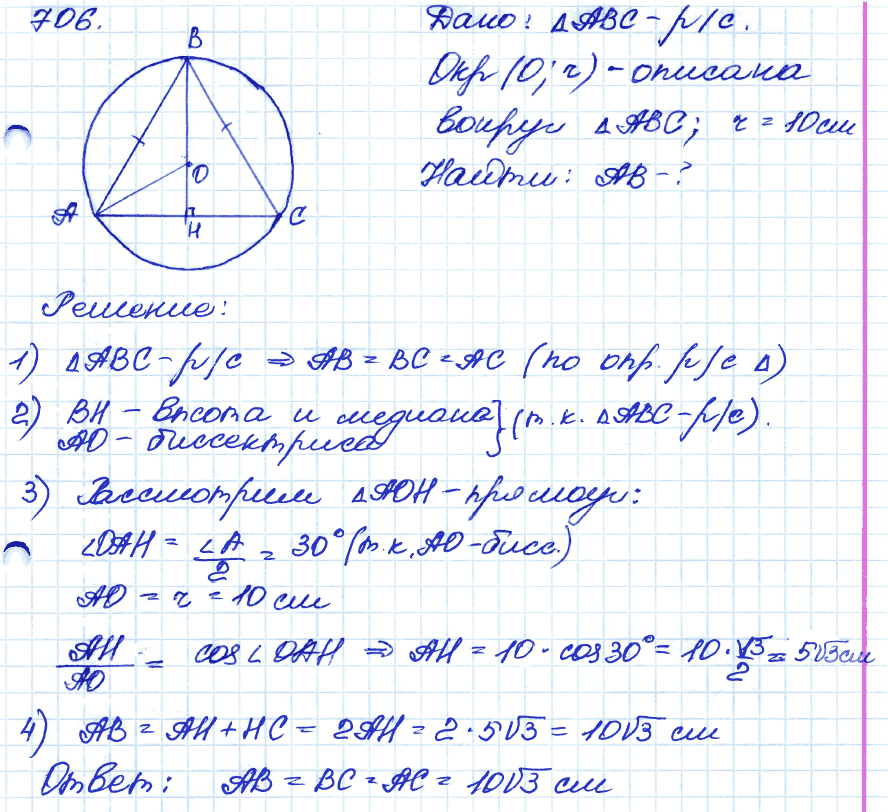 706.
B
O
A
H
C
Дано: △ABC – р/с.
Окр (O; r) – описана
вокруг △ABC; r = 10 см
Найти: AB – ?
Решение:
1) △ABC – р/с ⇒ AB = BC = AC (по опр. р/с △)
2) BH – высота и медиана } (т.к. △ABC – р/с).
AO – биссектриса
3) Рассмотрим △AOH – прямоуг:
∠OAH = ∠A/2 = 30° (т.к. AO – бисс.)
AO = r = 10 см
AH/AO = cos∠OAH ⇒ AH = 10 · cos30° = 10 · √3/2 = 5√3 см
4) AB = AH + HC = 2AH = 2 · 5√3 = 10√3 см
Ответ: AB = BC = AC = 10√3 см